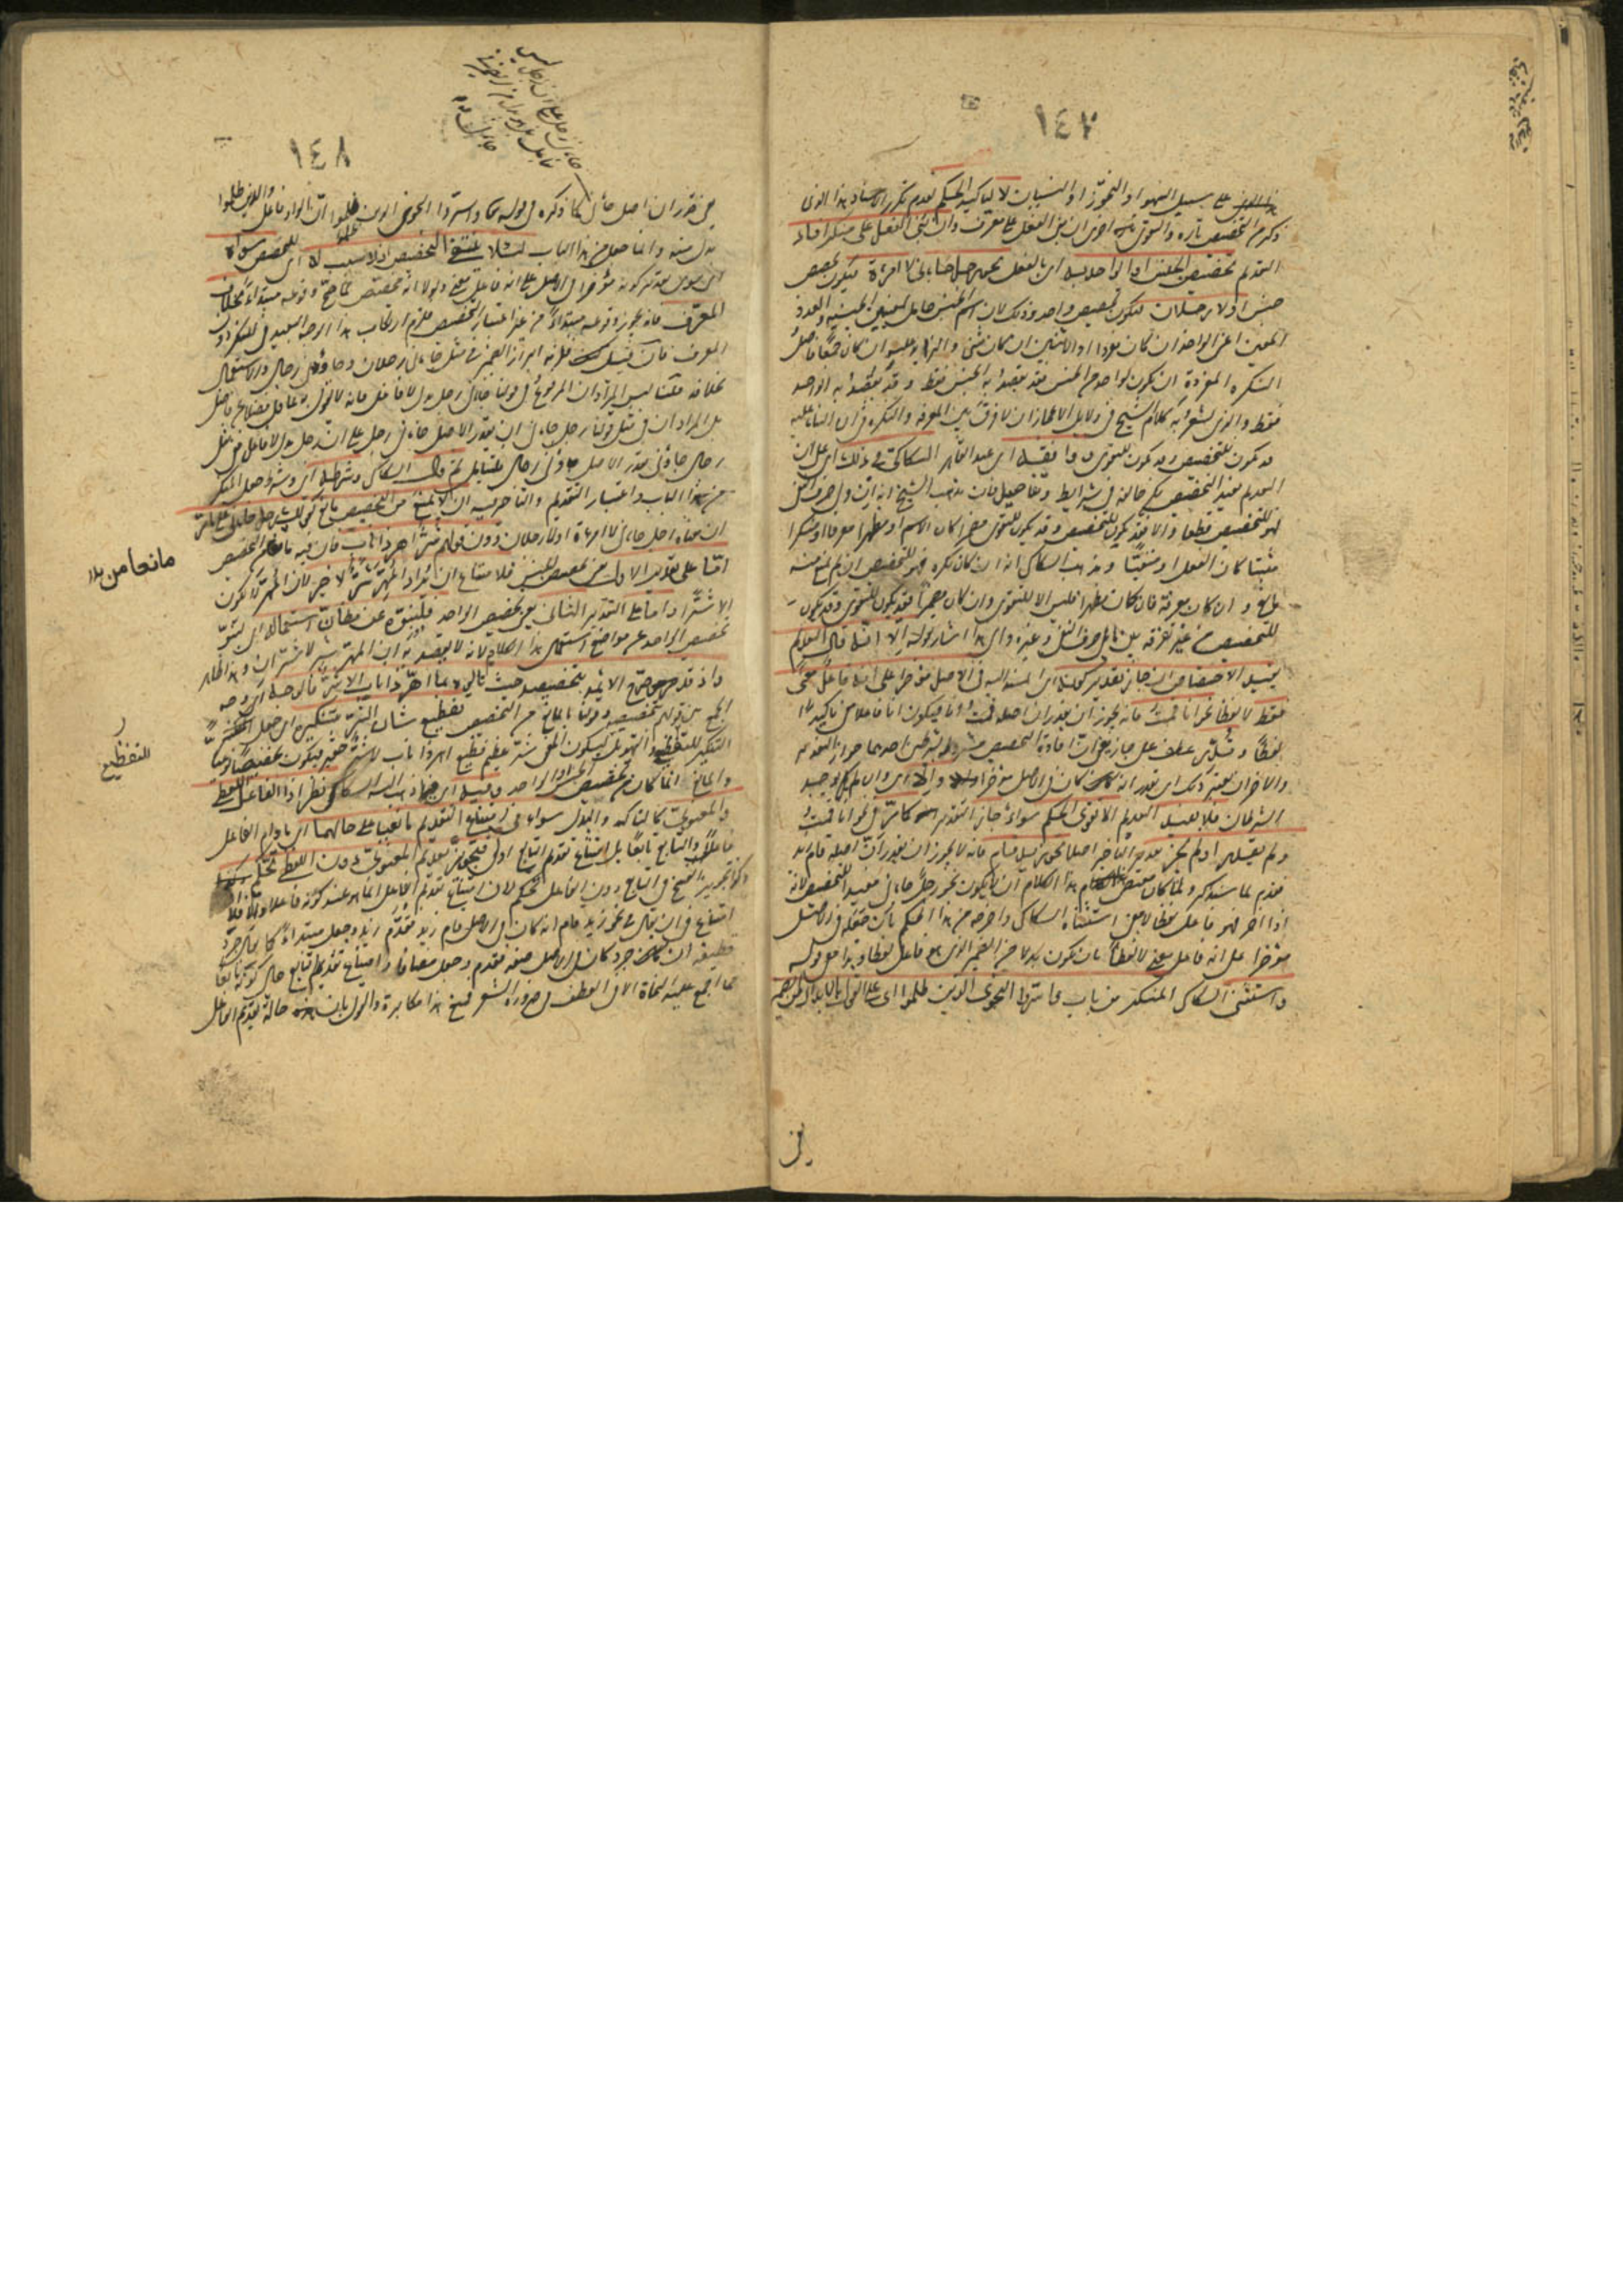 ١٤٧
على سبيل السهو او التجوز او النسيان لا لتاكيد الحكم لعدم تكرر الاسناد هذا الذى
ذكر من التخصيص تارة والتقوى اخرى ان بنى الفعل على معرف وان بنى الفعل على منكر افاد
التقديم تخصيص الجنس او الواحد به اى بالفعل نحو رجل جاءنى اى لا امرءة فيكون تخصيص
جنس او لا رجلان فيكون تخصيص واحد وذلك لان اسم الجنس حامل لمعنيين الجنسية والعدد
المعين اعنى الواحد ان كان مفردا او الاثنين ان كان مثنى والزائد عليه ان كان جمعا فاصل
النكرة المفردة ان يكون لواحد من الجنس فقد يقصد به الجنس فقط وقد يقصد به الواحد
فقط والذى يشعر به كلام الشيخ فى دلايل الاعجاز ان لا فرق بين المعرفة والنكرة فى ان البناء عليه
قد يكون للتخصيص وقد يكون للتقوى ووافقه اى عبد القاهر السكاكى على ذلك اى على ان
التقديم يفيد التخصيص لكن خالفه فى شرايط وتفاصيل فان مذهب الشيخ انه ان ولى حرف النفى
فهو للتخصيص قطعا والا فقد يكون للتخصيص وقد يكون للتقوى مضمرا كان الاسم او مظهرا معرفا او منكرا
مثبتا كان الفعل او منفيا ومذهب السكاكى انه ان كان نكرة فهو للتخصيص ان لم يمنع منه
مانع وان كان معرفة فان كان مظهرا فليس الا للتقوى وان كان مضمرا فقد يكون للتقوى وقد يكون
للتخصيص من غير تفرقة بين ما يلى حرف النفى وغيره والى هذا اشار بقوله الا انه قال التقديم
يفيد الاختصاص ان جاز تقدير كونه اى المسند اليه فى الاصل مؤخرا على انه فاعل معنى
فقط لا لفظا نحو انا قمت فانه يجوز ان يقدر ان اصله قمت انا فيكون انا فاعلا معنى تاكيدا
لفظا وقدر عطف على جاز يعنى ان افادة التخصيص مشروطة بشرطين احدهما جواز التقدير
والاخر ان يعتبر ذلك اى يقدر انه كان فى الاصل مؤخرا والا اى وان لم يوجد
الشرطان فلا يفيد التقديم الا تقوى الحكم سواء جاز التقدير كما مر فى نحو انا قمت
ولم يقدر او لم يجز تقدير التاخير اصلا نحو زيد قام فانه لا يجوز ان يقدر ان اصله قام زيد
فقدم لما سنذكر ولما كان مقتضى هذا الكلام ان لا يكون نحو رجل جاءنى مفيدا للتخصيص لانه
اذا اخر فهو فاعل لفظا لا معنى استثناه السكاكى واخرجه من هذا الحكم بان جعله فى الاصل
مؤخرا على انه فاعل معنى لا لفظا بان يكون بدلا من الضمير الذى هو فاعل لفظا وهذا معنى قوله
واستثنى السكاكى المنكر من باب واسروا النجوى الذين ظلموا اى على القول بالابدال من الضمير
١٤٨
يعنى قدر ان اصل جاءنى كما ذكره فى قوله تعالى واسروا النجوى الذين ظلموا ان الواو فاعل والذين ظلموا
بدل منه وانما جعله من هذا الباب لئلا ينتفى التخصيص اذ لا سبب له اى للتخصيص سواه
اى سوى تقدير كونه مؤخرا فى الاصل على انه فاعل معنى ولولا انه مخصص لما صح وقوعه مبتداء بخلاف
المعرف فانه يجوز وقوعه مبتداء من غير اعتبار التخصيص فلزم ارتكاب هذا الوجه البعيد فى المنكر دون
المعرف فان قيل فلزمه ابراز الضمير فى مثل جاءنى رجلان وجاؤنى رجال والاستعمال
بخلافه قلنا ليس المراد ان المرفوع فى قولنا جاءنى رجل بدل لا فاعل فانه لا يقول به عاقل فضلا عن فاضل
بل المراد ان فى مثل قولنا رجل جاءنى ان يقدر الاصل جاءنى رجل على ان رجل بدل لا فاعل ففى مثل
رجال جاؤنى يقدر الاصل جاؤنى رجال فليتامل ثم قال السكاكى وشرطه اى وشرط جعل المنكر
من هذا الباب واعتبار التقديم والتاخير فيه ان لا يمنع من التخصيص مانع كقولك رجل جاءنى على ما مر
ان معناه رجل جاءنى لا امرءة او لا رجلان دون قولهم شر اهر ذا ناب فان فيه مانعا من التخصيص
اما على تقدير الاول من تخصيص الجنس فلامتناع ان يراد المهر شر لا خير لان المهر لا يكون
الا شرا واما على التقدير الثانى يعنى تخصيص الواحد فلنبوه عن مظان استعماله اى لنبو
تخصيص الواحد عن مواضع استعمال هذا الكلام لانه لا يقصد به ان المهر شر لا شران وهذا ظاهر
واذ قد صرح الائمة بتخصيصه حيث تاولوه بما اهر ذا ناب الا شر فالوجه اى وجه
الجمع بين قولهم بتخصيصه وقولنا بالمانع من التخصيص تفظيع شان الشر بتنكيره اى جعل التنكير
التنكير للتعظيم والتهويل ليكون المعنى شر عظيم فظيع اهر ذا ناب لا شر حقير فيكون تخصيصا نوعيا
والمانع انما كان من تخصيص الجنس او الواحد وفيه اى فيما ذهب اليه السكاكى نظر اذ الفاعل اللفظى
والمعنوى كالتاكيد والبدل سواء فى امتناع التقديم ما بقيا على حالهما اى ما دام الفاعل
فاعلا والتابع تابعا بل امتناع تقديم التابع اولى فتجويز تقديم المعنوى دون اللفظى تحكم
وكذا تجويز الفسخ فى التابع دون الفاعل تحكم لان امتناع تقديم الفاعل انما هو عند كونه فاعلا والا فلا
امتناع فى ان يقال فى نحو زيد قام انه كان فى الاصل قام زيد فقدم زيد وجعل مبتداء كما يقال جرد
قطيفة ان جرد كان فى الاصل صفة فقدم وجعل مضافا وامتناع تقديم التابع حال كونه تابعا
مما اجمع عليه النحاة الا فى العطف فى ضرورة الشعر فمنع هذا مكابرة والقول بان حالة تقديم الفاعل
مانعا من
للتفظيع